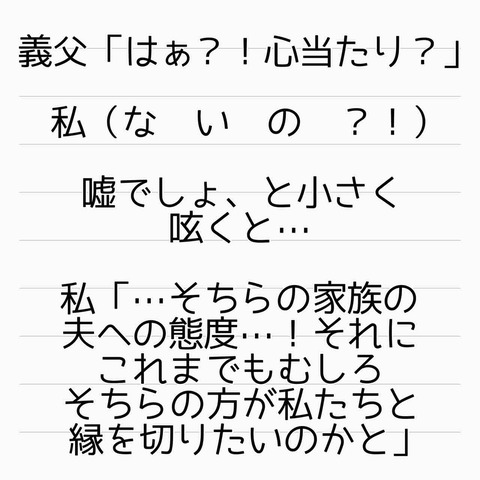 義父「はぁ？！心当たり？」
私（な　い　の　？！）
嘘でしょ、と小さく
呟くと…
私「…そちらの家族の
夫への態度…！それに
これまでもむしろ
そちらの方が私たちと
縁を切りたいのかと」